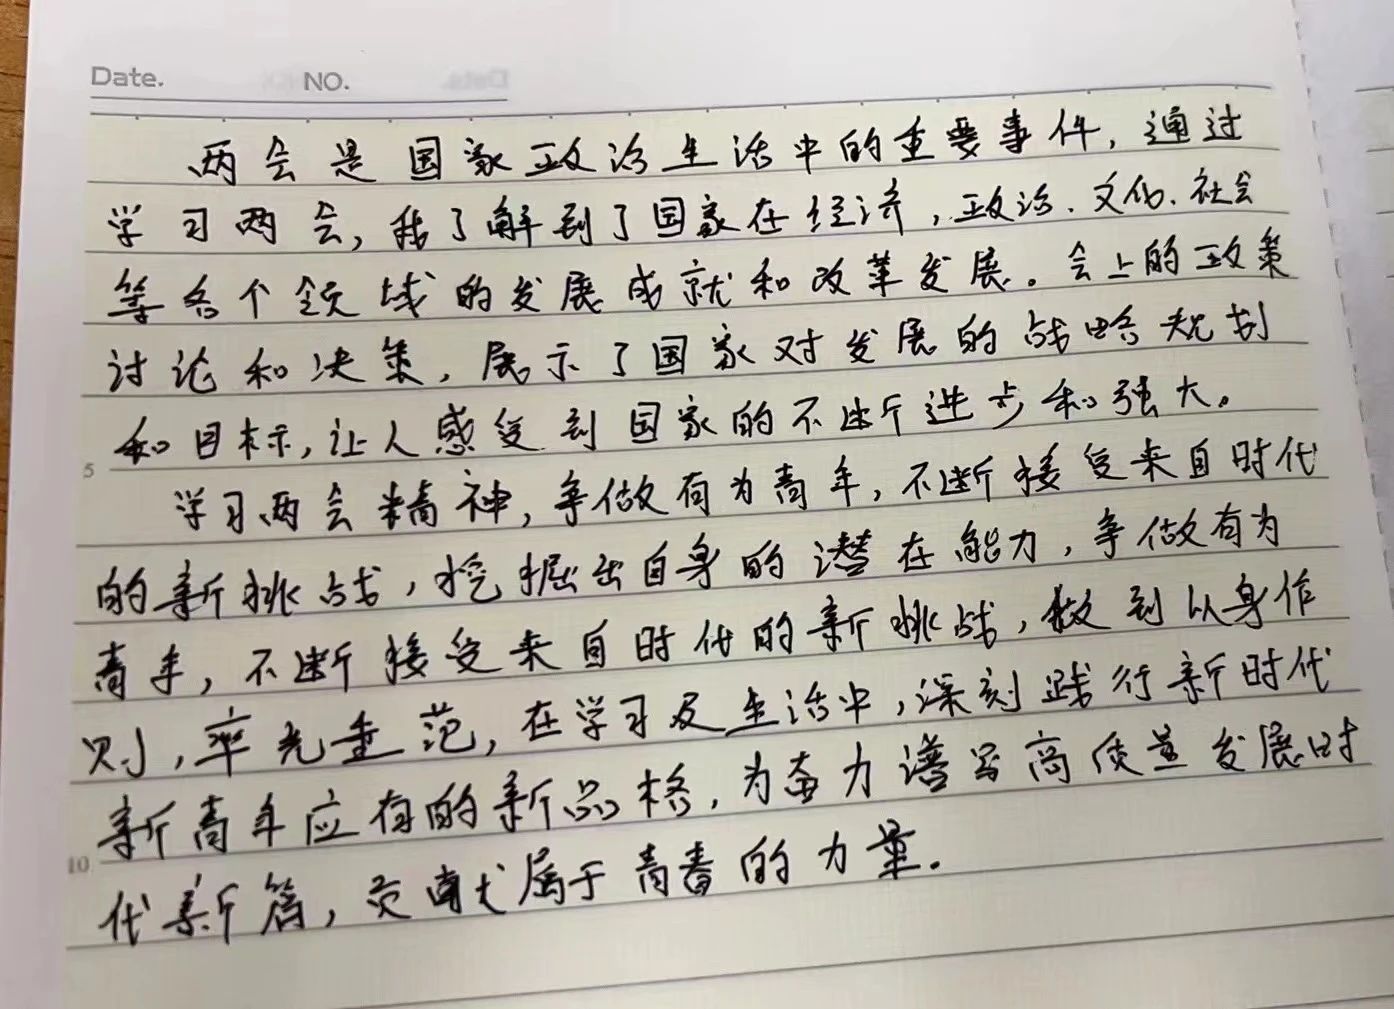 Date. NO.
两会是国家政治生活中的重要事件，通过
学习两会，我了解到了国家在经济，政治、文化、社会
等各个领域的发展成就和改革发展。会上的政策
讨论和决策，展示了国家对发展的战略规划
和目标，让人感受到国家的不断进步和强大。
5
学习两会精神，争做有为青年，不断接受来自时代
的新挑战，挖掘出自身的潜在能力，争做有为
青年，不断接受来自时代的新挑战，做到以身作
则，率先垂范，在学习及生活中，深刻践行新时代
新青年应有的新品格，为奋力谱写高质量发展时
10
代新篇，贡献属于青春的力量。